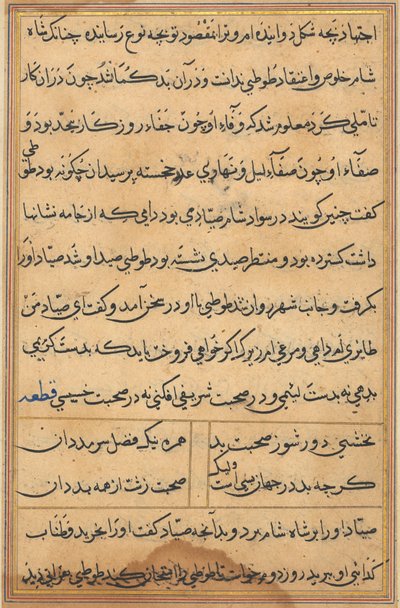 اجتهاد بچه شکل دوانیده ام و ترا بمقصود تو بچه نوع رسانیده چنانکه شاه
شام خلوص و اعتقاد طوطی ندانست و در آن بد کمان شد چون در آن کار
تاملی کرد معلوم شد که وفاء او چون جفاء روزگار بیحد بود و
صفاء او چون صفاء لیل و نهار بی عد خجسته پرسید آن چگونه بود طوطی
کفت چنین کویند در سواد شام صیادی بود دامی که از خامه نشانها
داشت کسترده بود و منتظر صیدی نشسته بود طوطی صید او شد صیاد اورا
بکرفت و جانب شهر روان شد طوطی با او در سخن آمد و کفت ای صیاد من
طایری ام داهی و مرغی ام زیرک اکر خواهی فروخت باید که بدست کریمی
بدهی نه بدست لئیمی و در صحبت شریفی افکنی نه در صحبت خسیسی قطعه
نخشبی دور شو ز صحبت بد
همره نیک فضل سرمد دان
کرچه بد در جهان بسی است ولیک
صحبت زشت از همه بد دان
صیاد اورا بر شاه شام برد و بدانچه صیاد کفت اورا بخرید و طناب
کدائی او ببرید روزدوم خواست تا طوطی را امتحانی کند طوطی